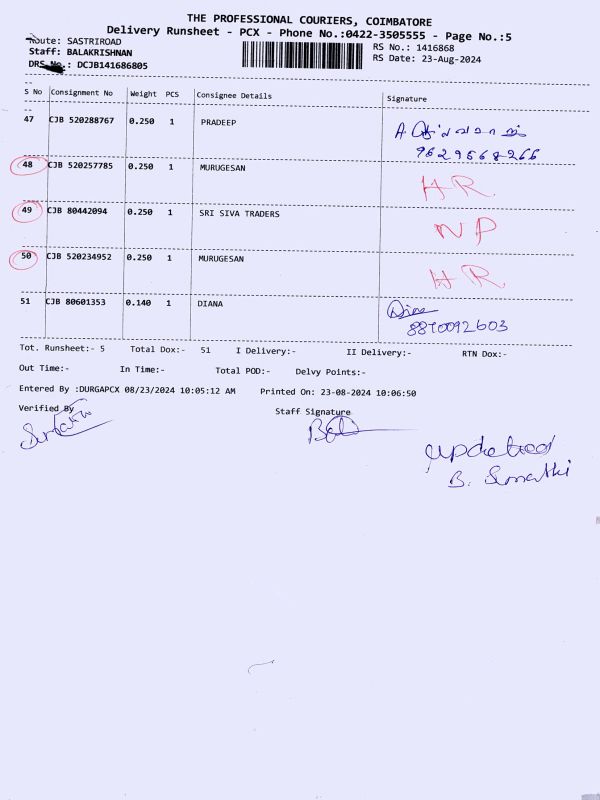 THE PROFESSIONAL COURIERS, COIMBATORE
Delivery Runsheet - PCX - Phone No.:0422-3505555 - Page No.:5
Route: SASTRIROAD
RS No.: 1416868
Staff: BALAKRISHNAN
RS Date: 23-Aug-2024
DRS No.: DCJB141686805
S No Consignment No Weight PCS Consignee Details Signature
47 CJB 520288767 0.250 1 PRADEEP
9629568266
48 CJB 520257785 0.250 1 MURUGESAN HR
49 CJB 80442094 0.250 1 SRI SIVA TRADERS NP
50 CJB 520234952 0.250 1 MURUGESAN HR
51 CJB 80601353 0.140 1 DIANA
8870092603
Tot. Runsheet:- 5 Total Dox:- 51 I Delivery:- II Delivery:- RTN Dox:-
Out Time:- In Time:- Total POD:- Delvy Points:-
Entered By :DURGAPCX 08/23/2024 10:05:12 AM Printed On: 23-08-2024 10:06:50
Verified By Staff Signature
updated
B. Sumathi